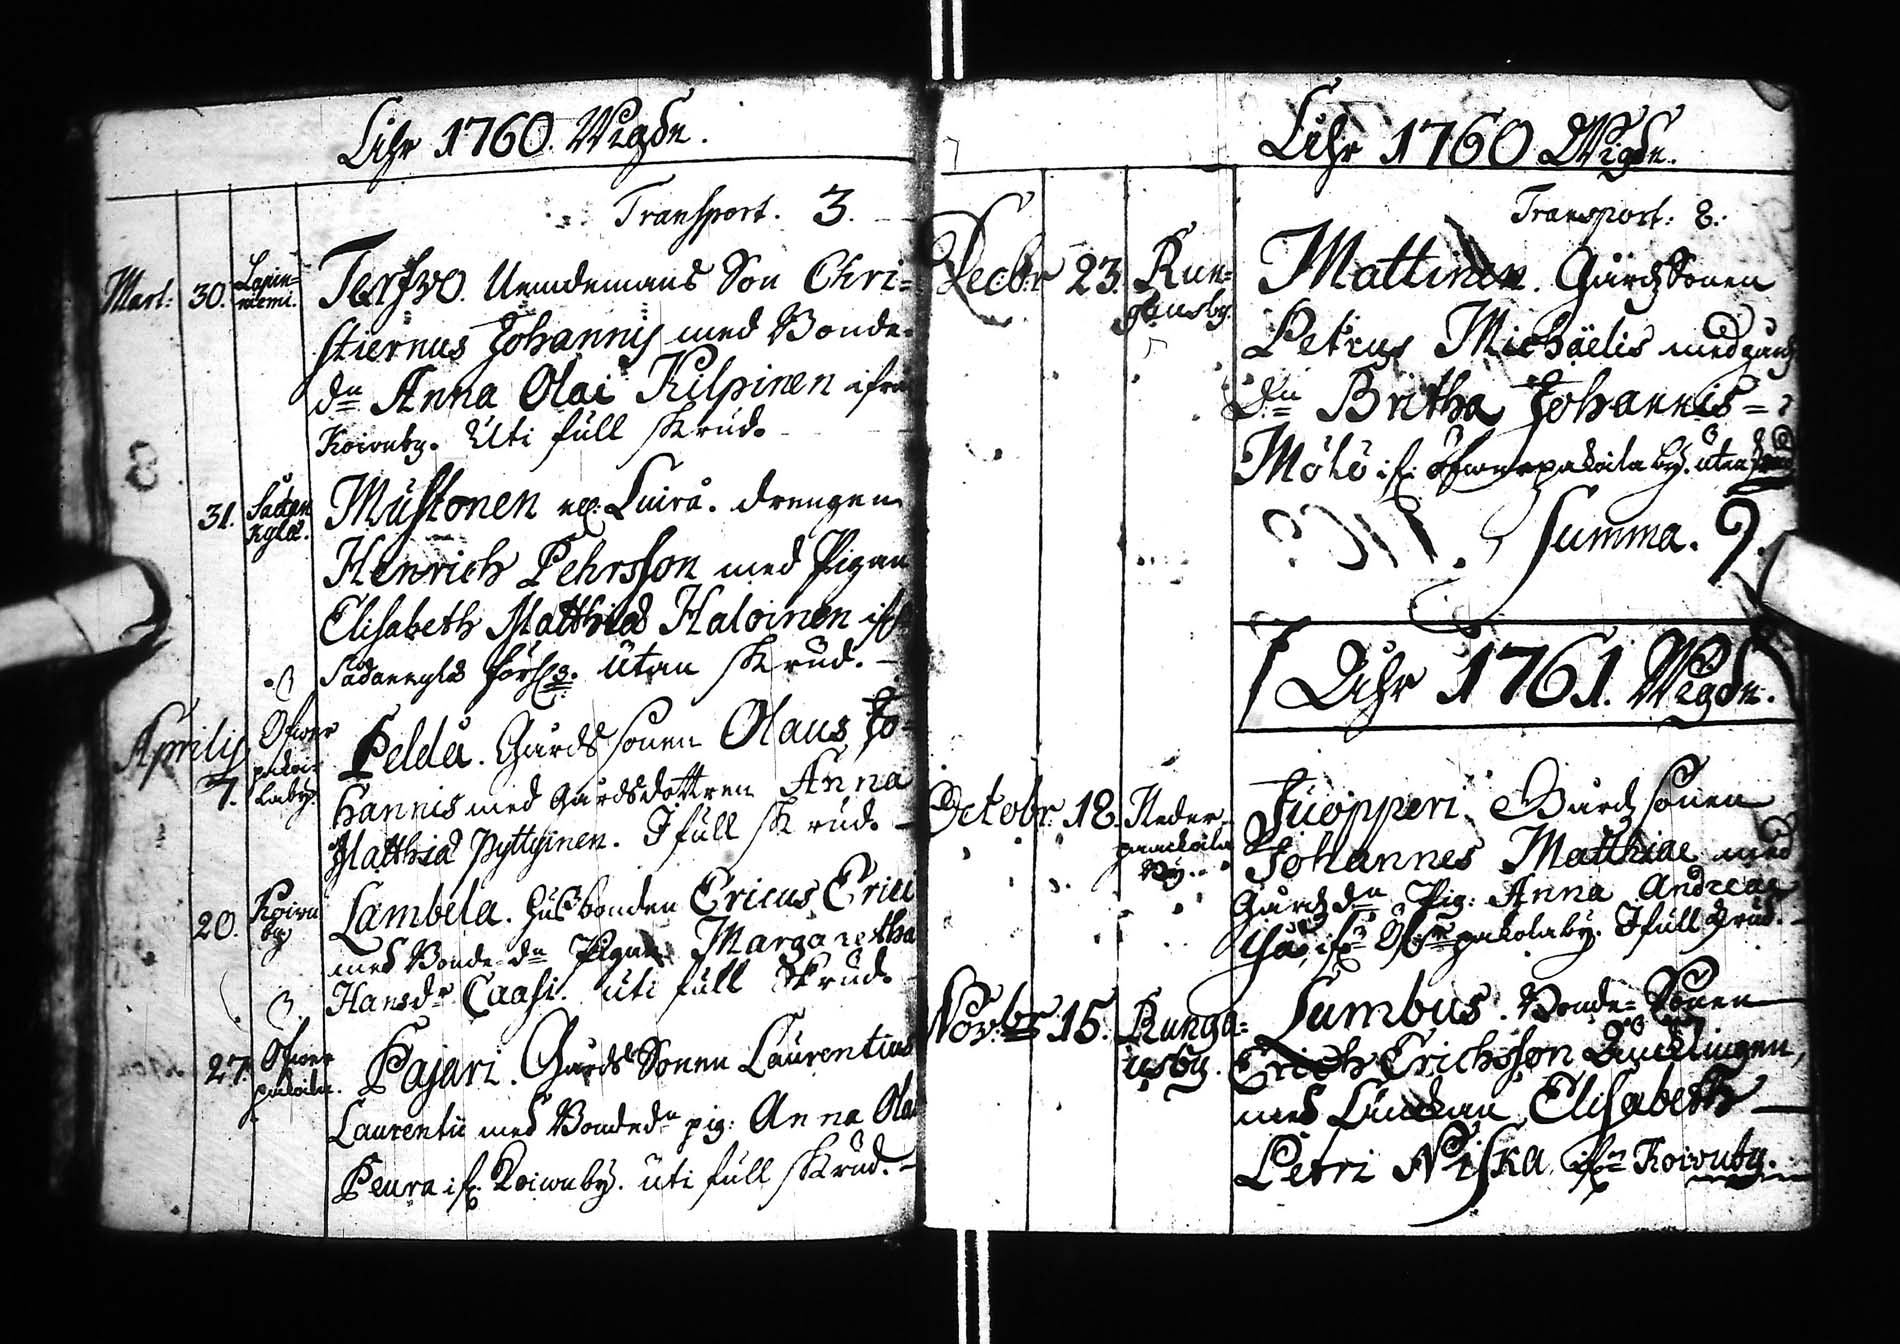 Åhr 1760. Wigde.
Transport. 3.
Mart: 30. Lapin=
niemi.
Terfwo. Nemdemans Son Chri=
stiernus Johannis med Bonde=
dn Anna Olai Kilpinen ifrn
Koivuby. Uti full skrud.
31. Sådan
kylä.
Mustonen el. Luiro. drengen
Henrich Pehrsson med Pigan
Elisabeth Matthiæ Haloinen ifr
Sådankylä utan skrud.
Aprilis
7.
Öfwer
pakoi=
laby.
Pelda. Gårds sonen Olaus Jo=
hannis med Gårdsdottren Anna
Matthiæ Pyttyinen. I full skrud.
20. Koivu
by
Lambela. Husbonden Ericus Erici
med Bonde dn Pigan Margaretha
Hansdr Caasi. uti full skrud.
27. Öfwer
pakoila.
Pajari. Gårds Sonen Laurentius
Laurentii med Bondedn pig: Anna Olai
Peura if. Koivuby. uti full skrud.
Åhr 1760 Wigde.
Transport: 8.
Decbr 23. Kun=
gänsby.
Mattinen. Gårds Sonen
Petrus Michaëlis med gårds
dn Britha Johannis=
Möhö if. Öfwerpakoila by. utan
Summa. 9.
Åhr 1761. Wigde.
Octobr. 18. Neder=
paackoila
By.
Juopperi Gårds sonen
Johannes Matthiae med
Gårds dn Pig: Anna Andreae
ifrn Öfwerpakola by. I full Skrud.
Nov:br 15. Kunga=
usby.
Lumbus. Bonde= Sonen
Erich Erichsson
med Enckan Elisabeth
Petri Niska, ifrn Koivuby.